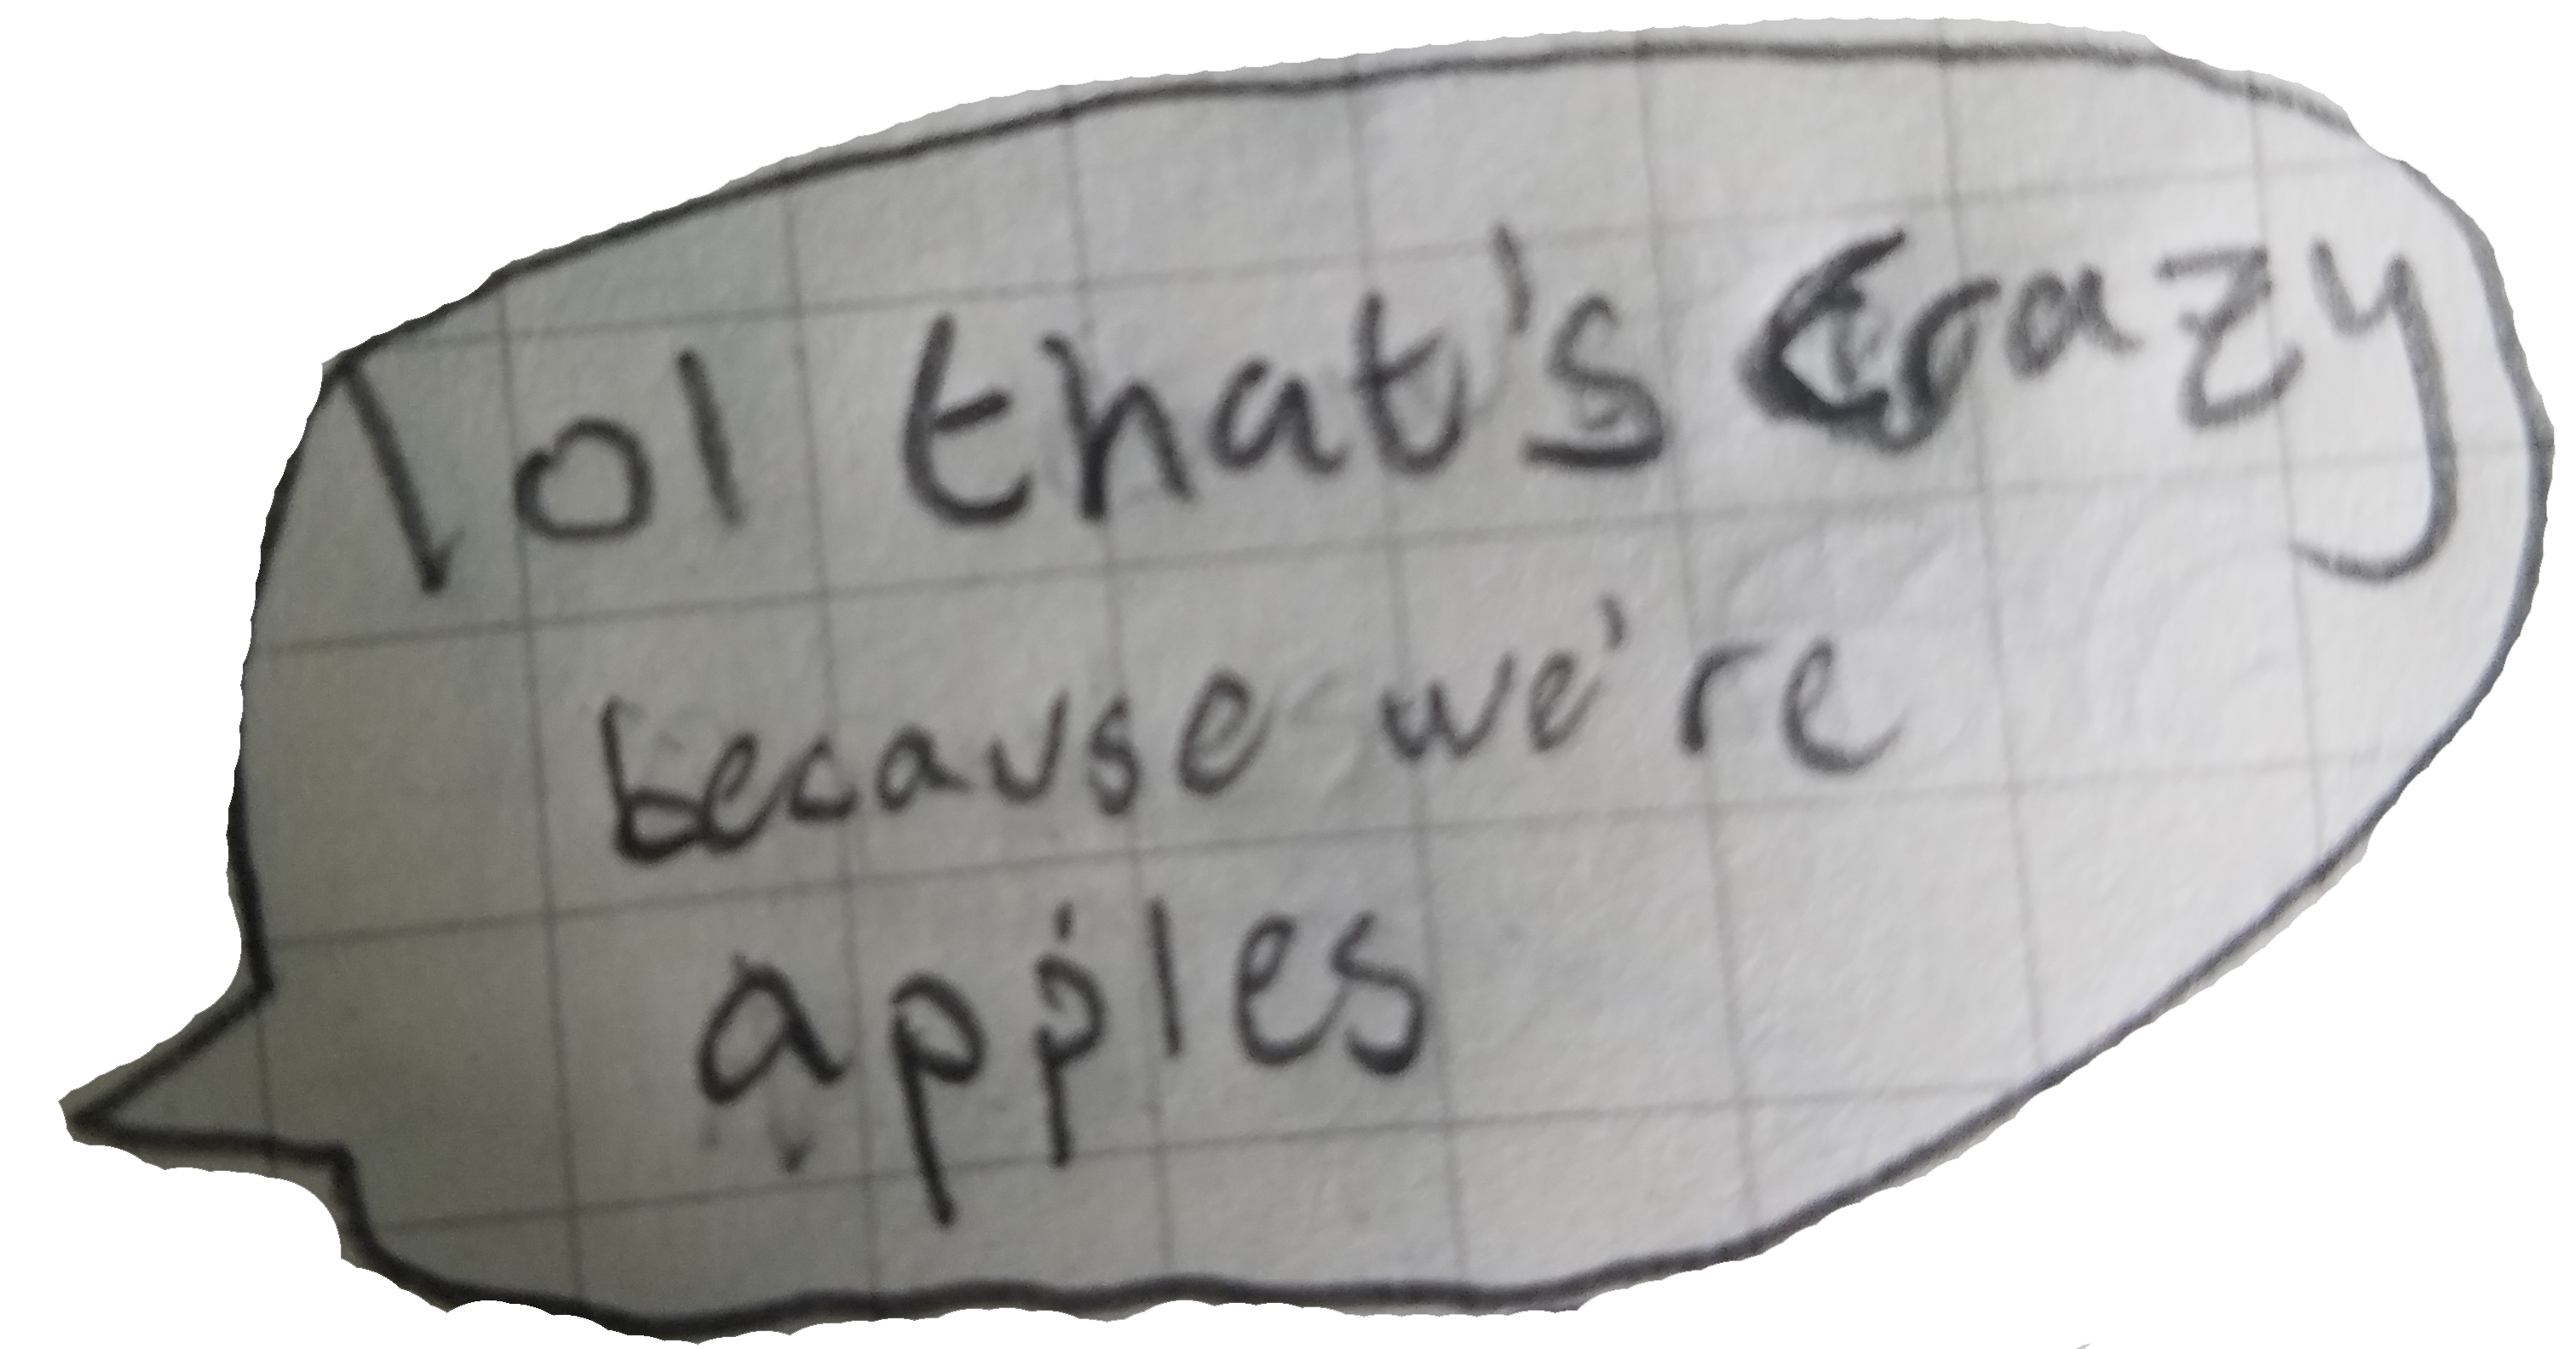 lol that's crazy
because we're
apples